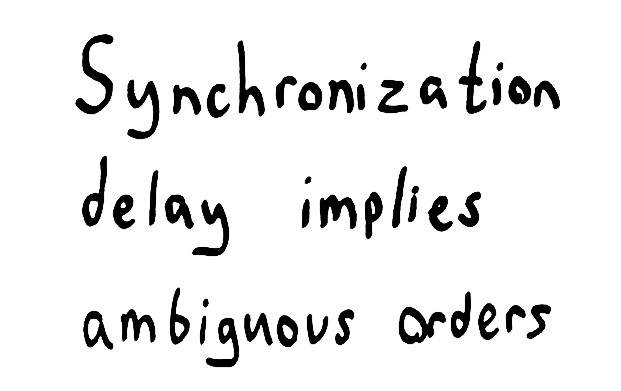 Synchronization
delay implies
ambiguous orders